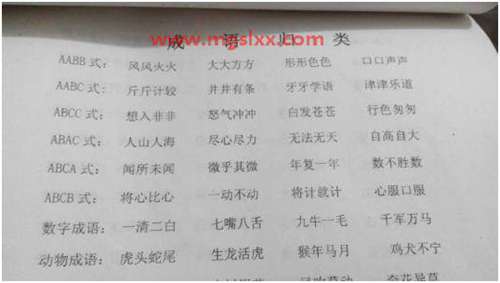 www.mgslxx.com
成 语 归 类
AABB 式：风风火火 大大方方 形形色色 口口声声
AABC 式：斤斤计较 井井有条 牙牙学语 津津乐道
ABCC 式：想入非非 怒气冲冲 白发苍苍 行色匆匆
ABAC 式：人山人海 尽心尽力 无法无天 自高自大
ABCA 式：闻所未闻 微乎其微 年复一年 数不胜数
ABCB 式：将心比心 一动不动 将计就计 心服口服
数字成语：一清二白 七嘴八舌 九牛一毛 千军万马
动物成语：虎头蛇尾 生龙活虎 猴年马月 鸡犬不宁
风吹草动 奇花异草